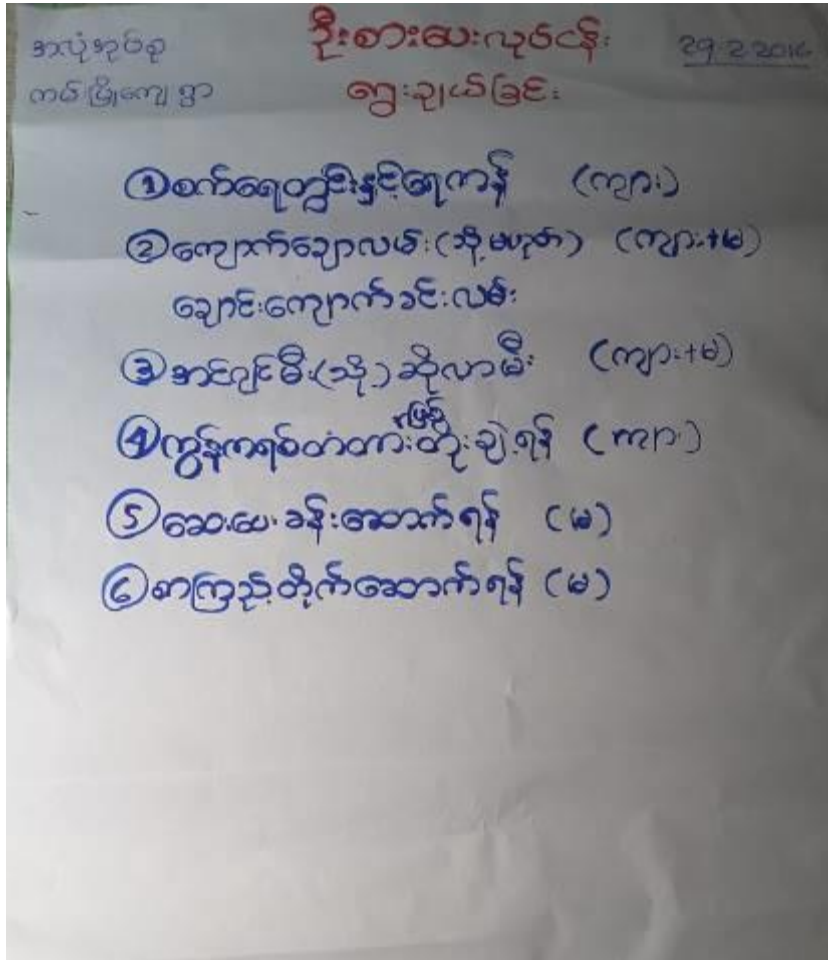 အလုံအုပ်စု
ကင်းမြို့ကျေးရွာ
ဦးစားပေးလုပ်ငန်း
ရွေးချယ်ခြင်း
29.2.2016
① စက်ရေတွင်းနှင့်ရေကန် (ကျား)
② ကျောက်ချောလမ်း (သို့မဟုတ်) (ကျား+မ)
ချောင်းကျောက်ခင်းလမ်း
③ အင်ဂျင်မီး (သို့) ဆိုလာမီး (ကျား+မ)
④ ကွန်ကရစ်တံတား တိုးချဲ့ရန် (ကျား)
⑤ ဆေးပေးခန်းဆောက်ရန် (မ)
⑥ စာကြည့်တိုက်ဆောက်ရန် (မ)